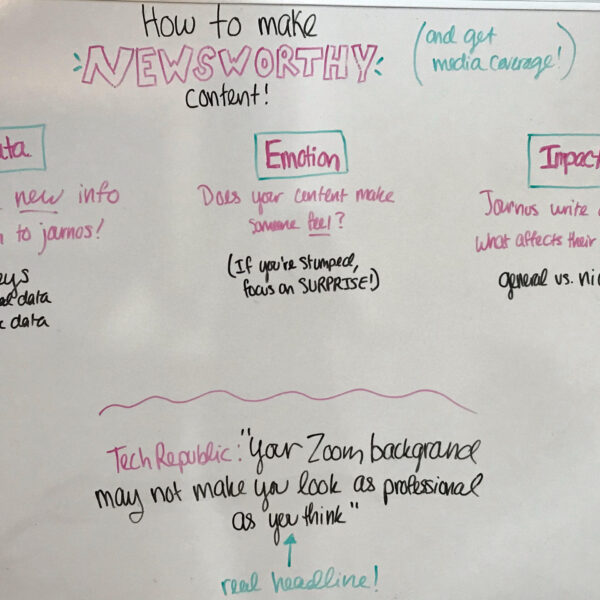 How to make
NEWSWORTHY
content!
(and get
media coverage!)
ata
new info
to journos!
eys
al data
c data
Emotion
Does your content make
someone feel?
(If you're stumped,
focus on SURPRISE!)
Impact
Journos write
what affects their
general vs. nic
TechRepublic: "Your Zoom background
may not make you look as professional
as you think"
real headline!